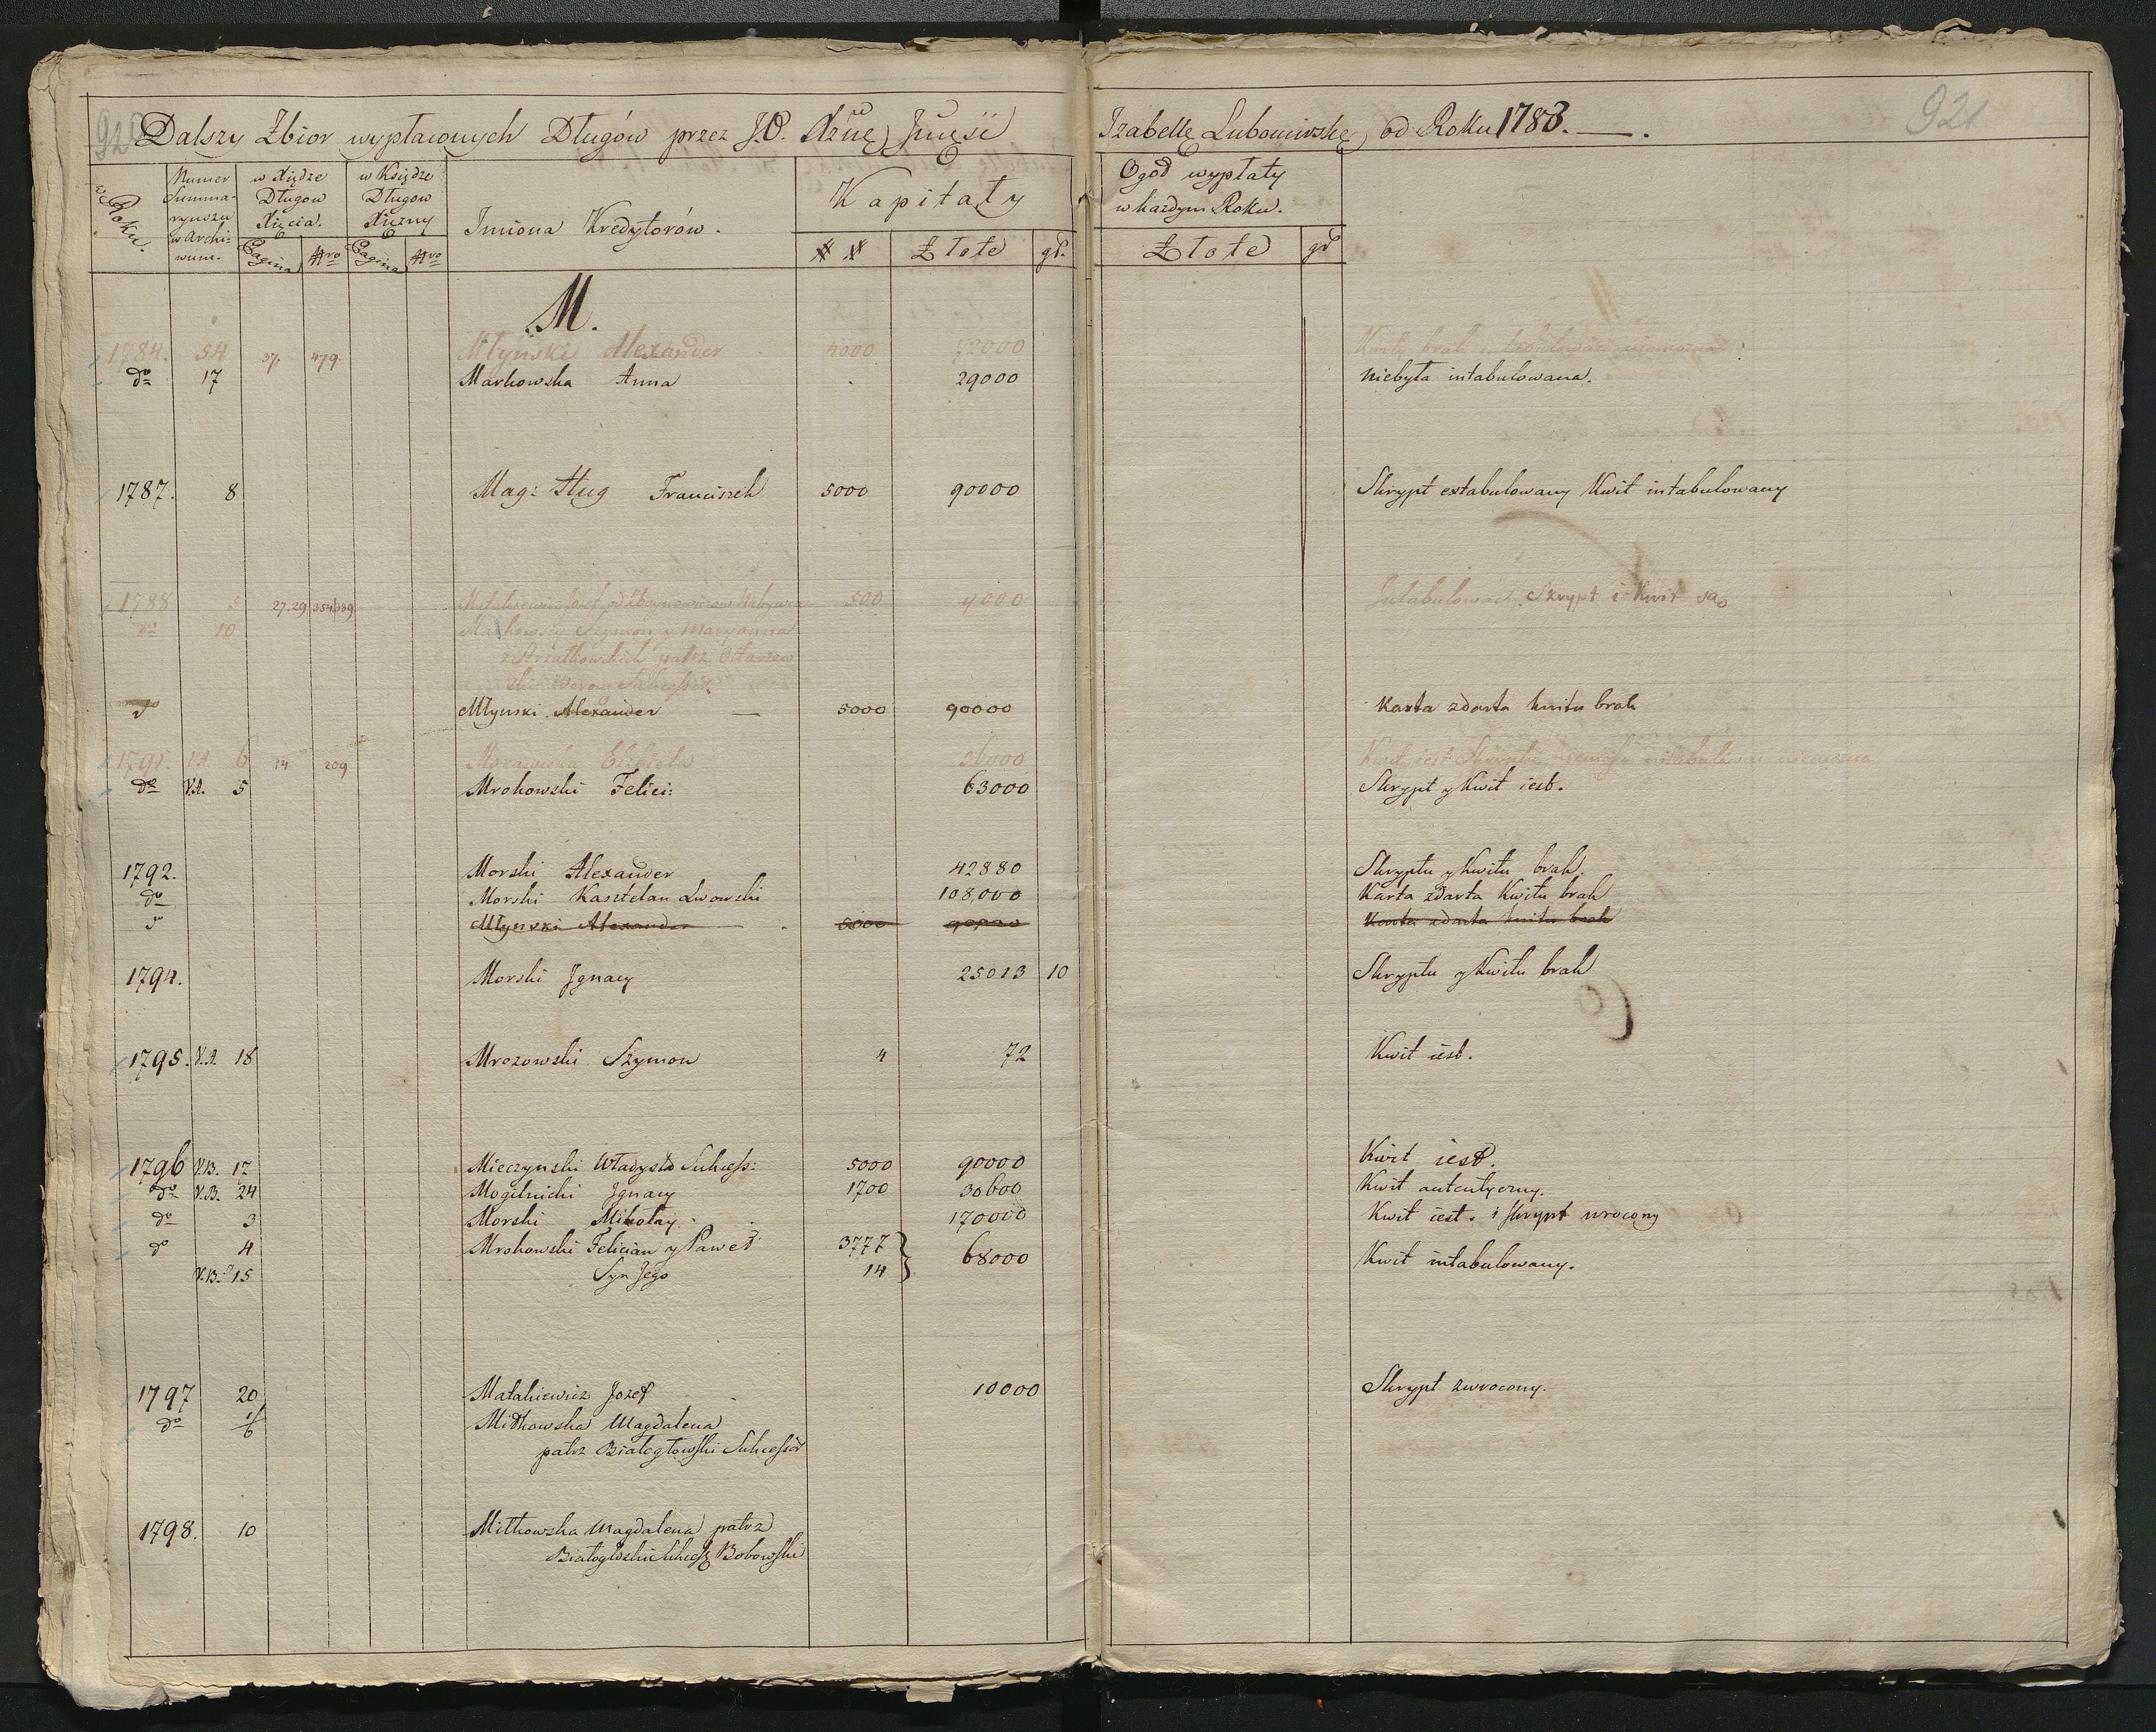 920 Dalszy Zbior wypłaconych Długów przez J.O. Xżnę Izabellę Lubomirskę od Roku 1783. 921
w Roku.
Numer Summaryuszu w Archiwum.
w Xiędze Długow Xięcia. Pagina Nro
w Księdze Długow Xiężny Pagina Nro
Imiona Kredytorów.
Kapitały
## Złote gr.
Ogoł wypłaty w kazdym Roku.
Złote gr
M.
1784. 54 37. 479. Młynski Alexander 4000 72000
do 17 Markowska Anna 29000 niebyła intabulowana.
1787. 8 Mag: Hug Franciszek 5000 90000 Skrypt extabulowany Kwit intabulowany
1788 5 27.29 Jozef 500 9000 Skrypt i Kwit są
do 10 Szymon y Maryanna
patrz
do Młynski Alexander 5000 90000 Karta zdarta kwitu brak
1791. V.A. 6 14 209 Elzbieta 36000 Kwit iest
do V.A. 5 Mrokowski Felici: 63000 Skrypt y Kwit iest.
1792. Morski Alexander 42880 Skryptu y Kwitu brak.
do Morski Kasztelan Lwowski 108,000 Karta zdarta Kwitu brak
do Młynski Alexander 5000 90000 Karta zdarta kwitu brak
1794. Morski Jgnacy 25013 10 Skryptu y Kwitu brak
1795. V.A. 18 Mrozowski Szymon 4 72 Kwit iest.
1796 V.B. 17 Mieczynski Władysł Sukcess: 5000 90000 Kwit iest.
do V.B. 24 Mogilnicki Jgnacy 1700 30600 Kwit autentyczny.
do 3 Morski Mikołay. 170000 Kwit iest. i skrypt wrocony
do 4 Mrokowski Felician y Paweł 3777 } 68000 Kwit intabulowany.
V.B. 15 Syn Jego 14
1797 20 Małakiewicz Jozef 10000 Skrypt zwrocony.
do 1/6 Mitkowska Magdalena
patrz Białogłowski Sukcessor
1798. 10 Mitkowska Magdalena patrz
Białogłoski Sukces Bobowski